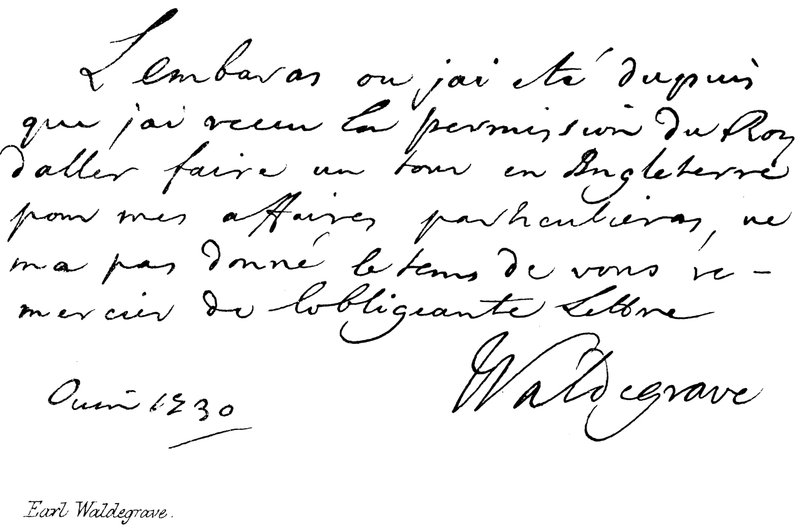 L'embaras ou jai eté dupuis
que j'ai receu la permission du Roy
daller faire un tour en Angleterre
pour mes affaires particulieras, ne
ma pas donné le tems de vous re-
mercier de lobligeante Lettre
Waldegrave
1730
Earl Waldegrave.